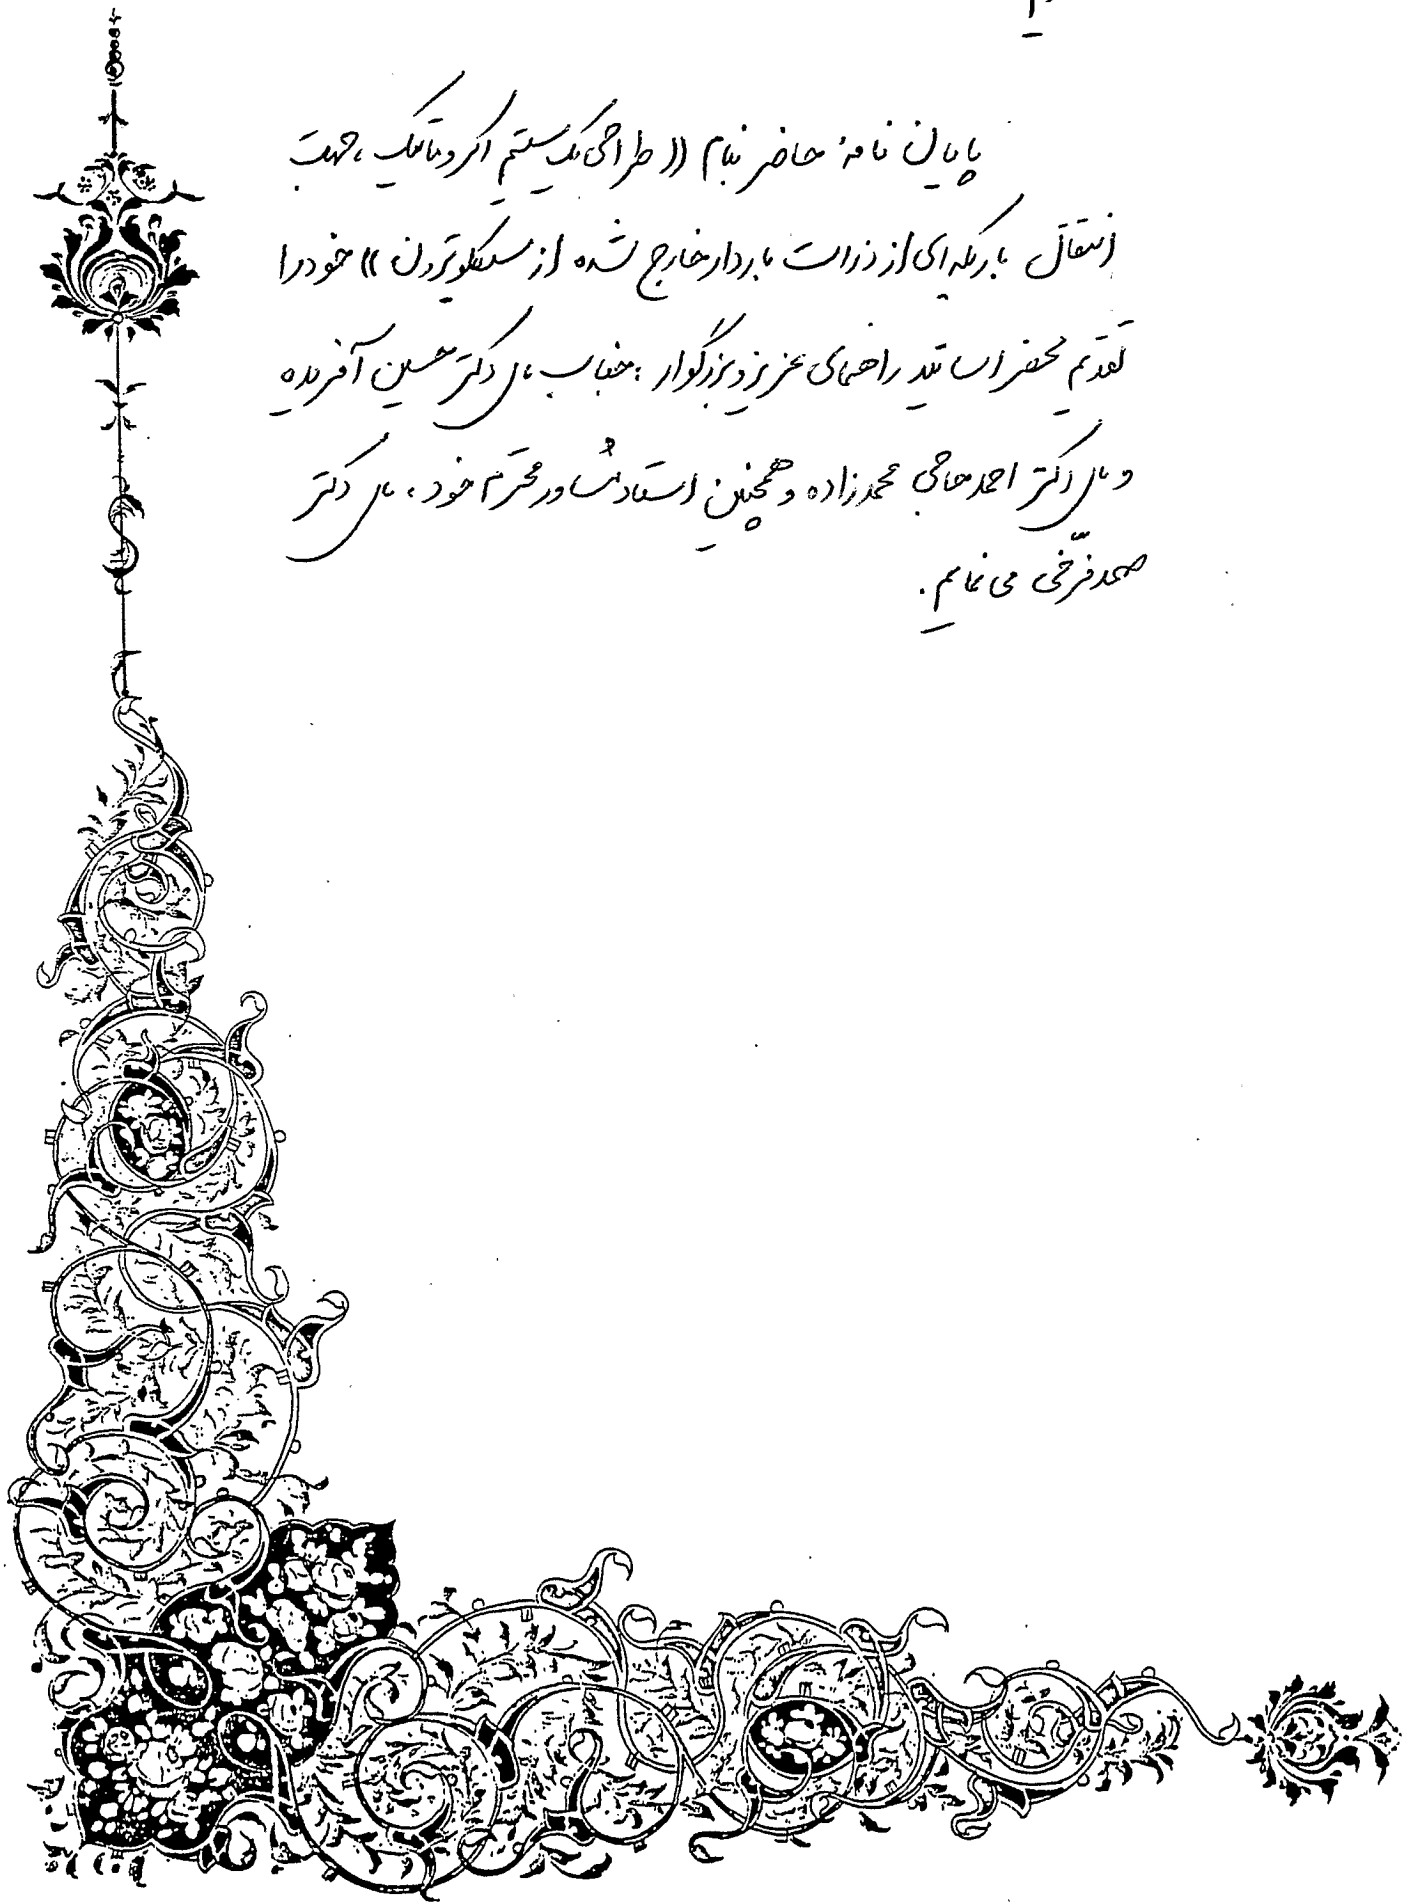 پایان نامهٔ حاضر بنام (( طراحی یک سیستم اکروماتیک ، جهت
انتقال باریکه‌ای از ذرات باردار خارج شده از سیکلوترون )) خود را
تقدیم محضر اساتید راهنمای عزیز و بزرگوار ، جناب دکتر حسین آفریده
و دکتر احمد حاجی محمدزاده و همچنین استاد مشاور محترم خود ، دکتر
صمد فرّخی می نمایم .